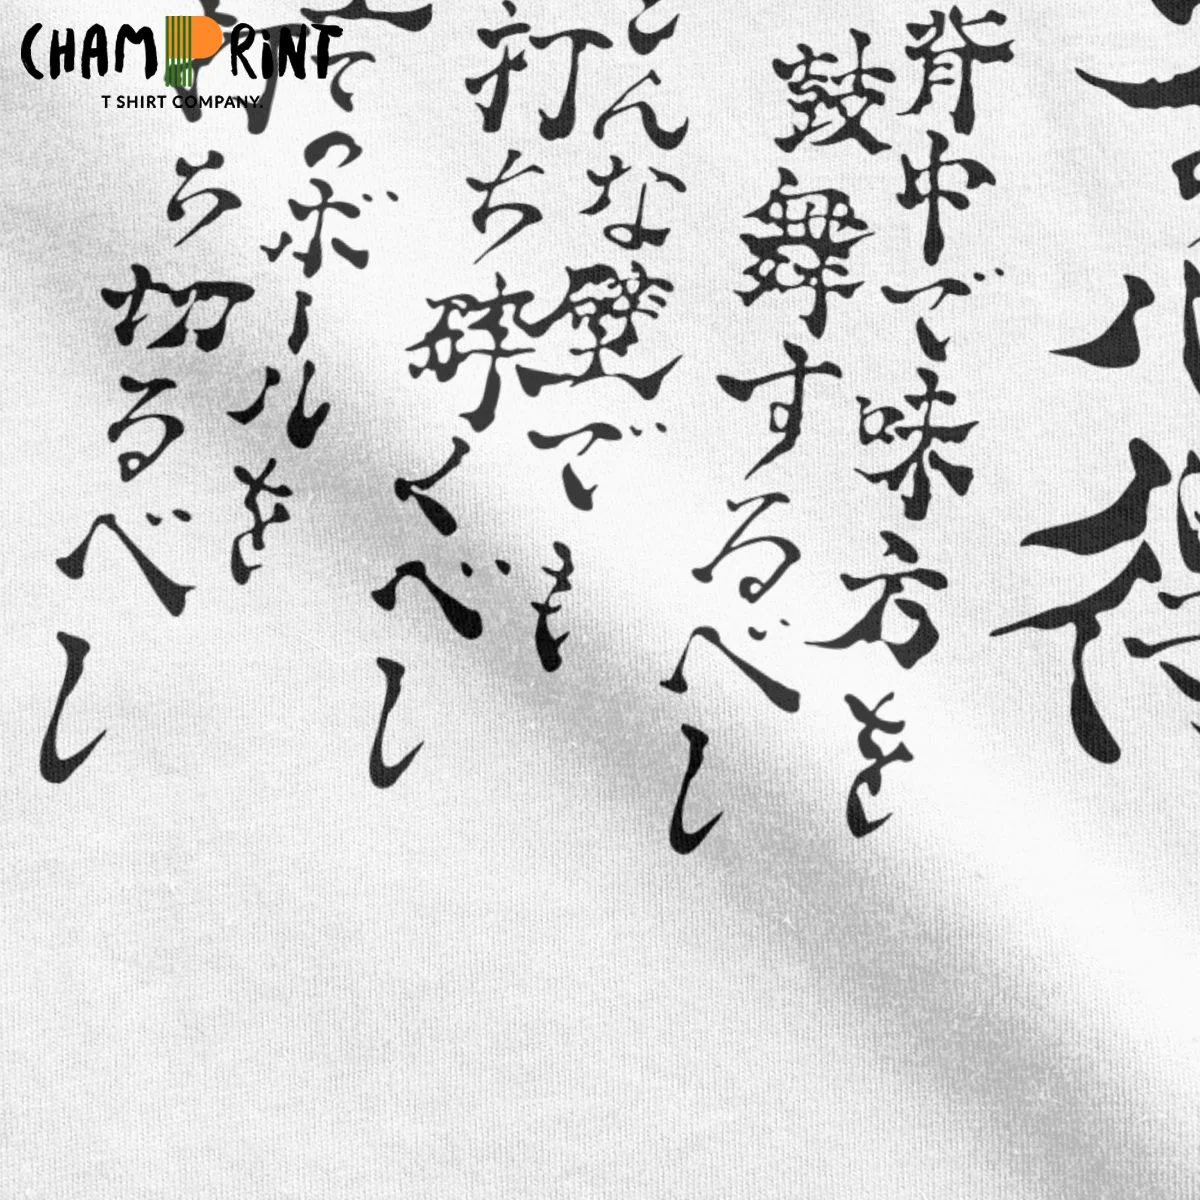 CHAMPRINT
T SHIRT COMPANY.
背中で味方を
鼓舞するべし
どんな壁でも
打ち砕くべし
てっボールを
打ち切るべし